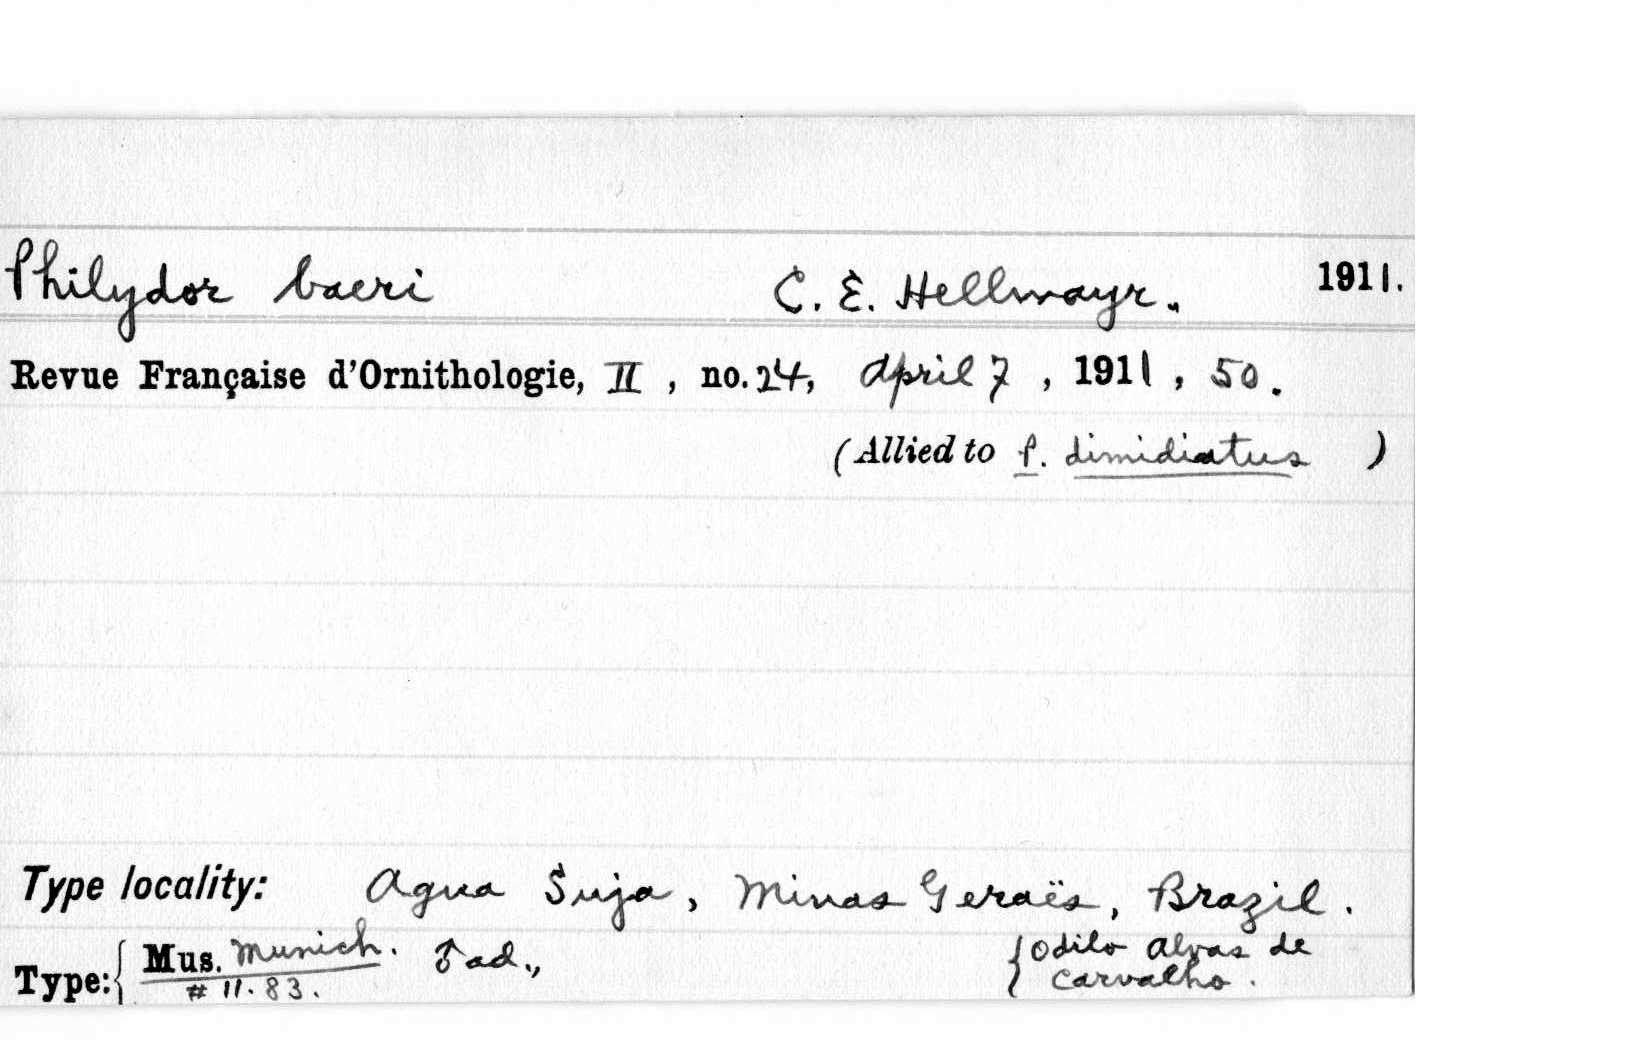 Philydor baeri C. E. Hellmayr. 1911.
Revue Française d'Ornithologie, II, no. 24, April 7, 1911, 50.
(Allied to P. dimidiatus )
Type locality: Agua Suja, Minas Geraës, Brazil.
Type: { Mus. Munich. ♂ ad., { Odilo Alvas de
# 11.83. Carvalho.